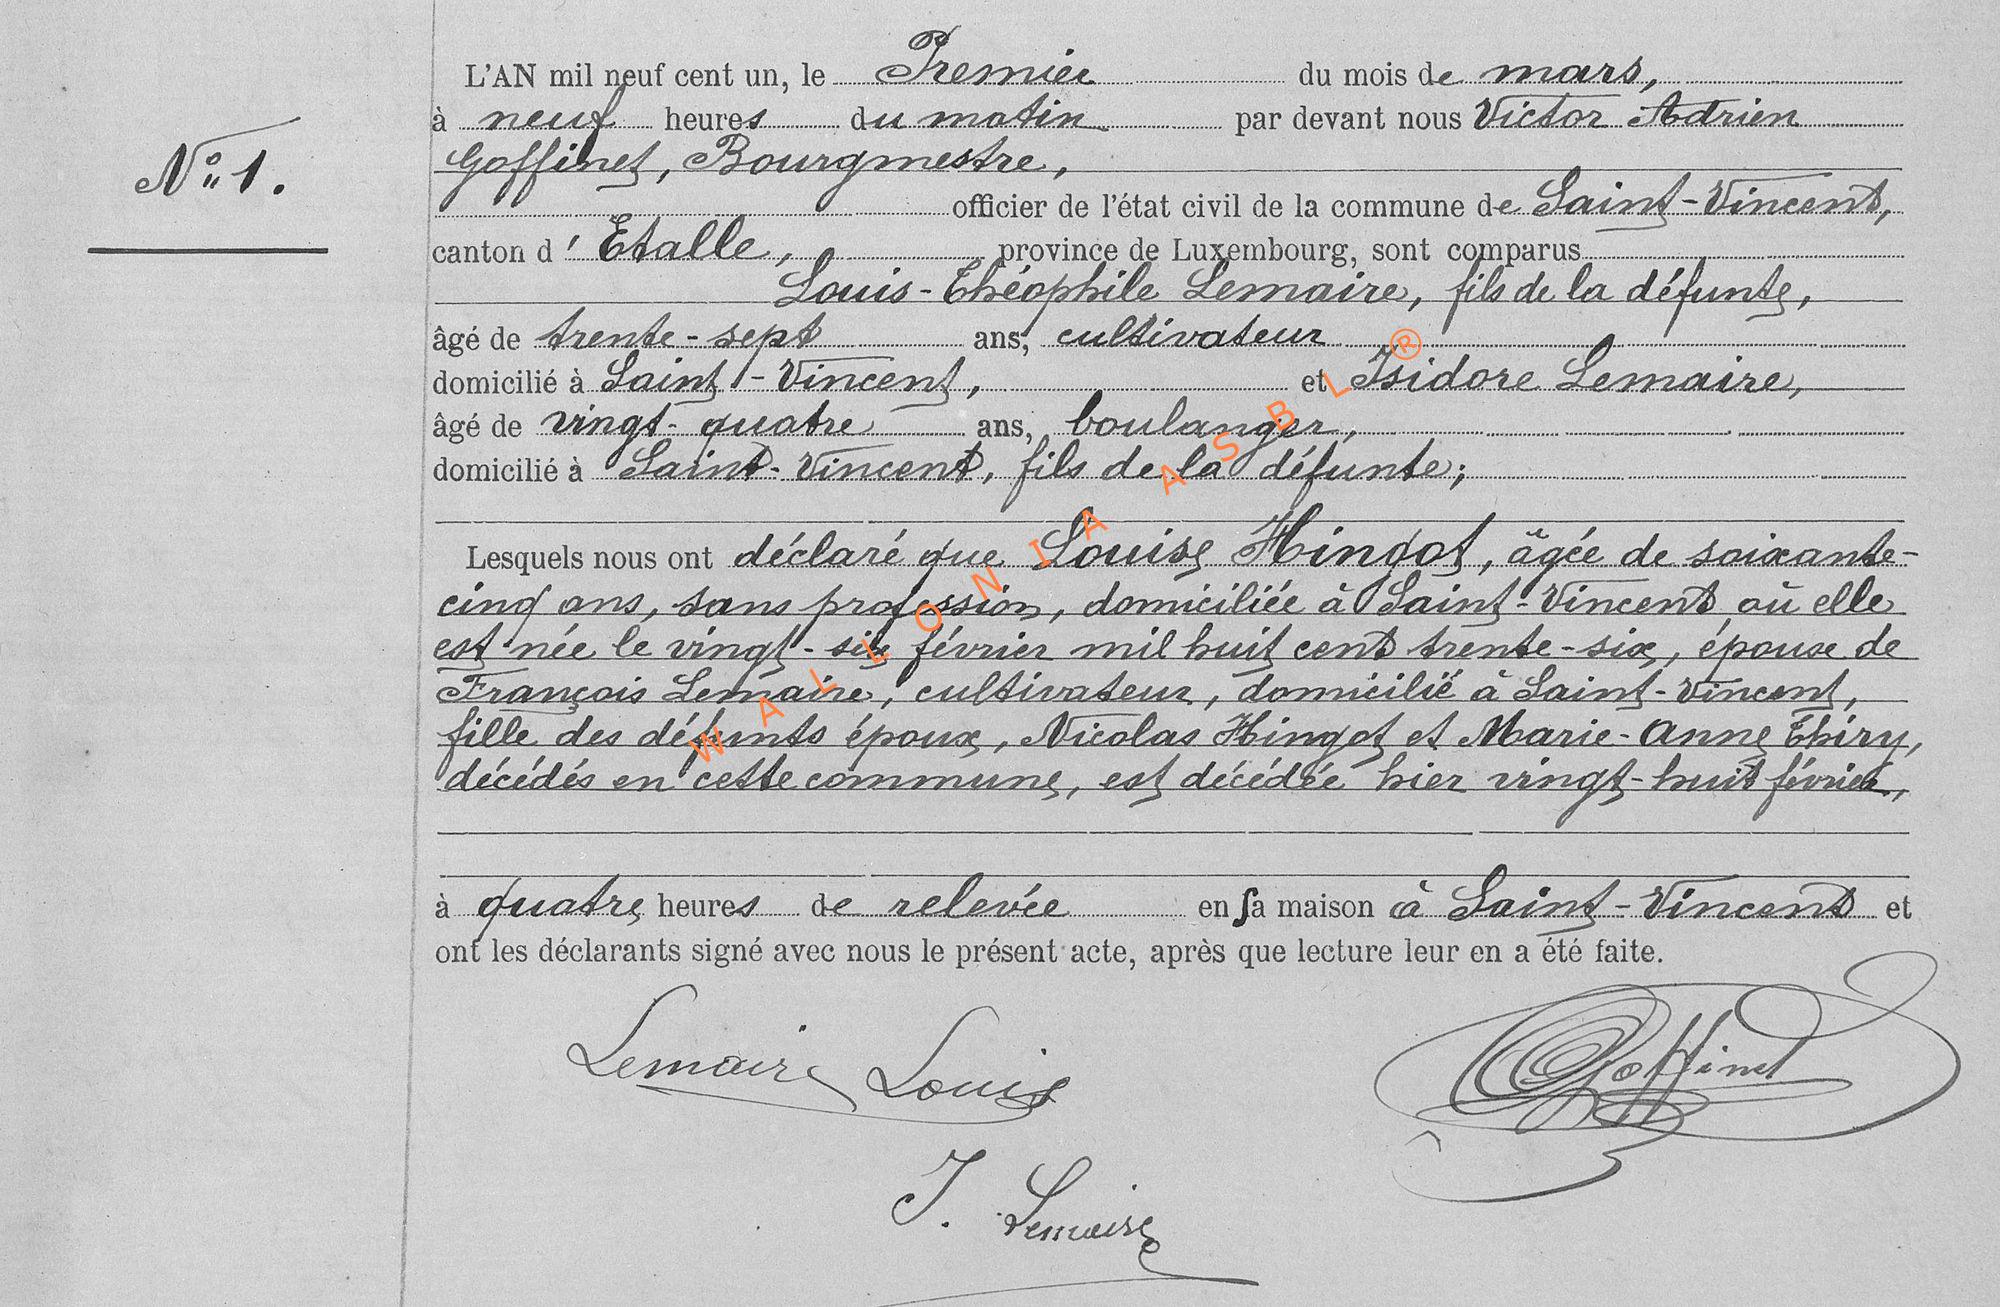 L'AN mil neuf cent un, le Premier du mois de mars,
à neuf heures du matin par devant nous Victor Adrien
Goffinet, Bourgmestre,
N° 1.
officier de l'état civil de la commune de Saint-Vincent,
canton d' Etalle, province de Luxembourg, sont comparus
Louis-Théophile Lemaire, fils de la défunte,
âgé de trente-sept ans, cultivateur
domicilié à Saint-Vincent, et Isidore Lemaire,
âgé de vingt-quatre ans, boulanger,
domicilié à Saint-Vincent, fils de la défunte;
Lesquels nous ont déclaré que Louise Hingot, âgée de soixante-
cinq ans, sans profession, domiciliée à Saint-Vincent où elle
est née le vingt-six février mil huit cent trente-six, épouse de
François Lemaire, cultivateur, domicilié à Saint-Vincent,
fille des défunts époux, Nicolas Hingot et Marie-Anne Thiry,
décédés en cette commune, est décédée hier vingt-huit février,
à quatre heures de relevée en sa maison à Saint-Vincent et
ont les déclarants signé avec nous le présent acte, après que lecture leur en a été faite.
Lemaire Louis
Goffinet
J. Lemaire
WALLONIA ASBL ®